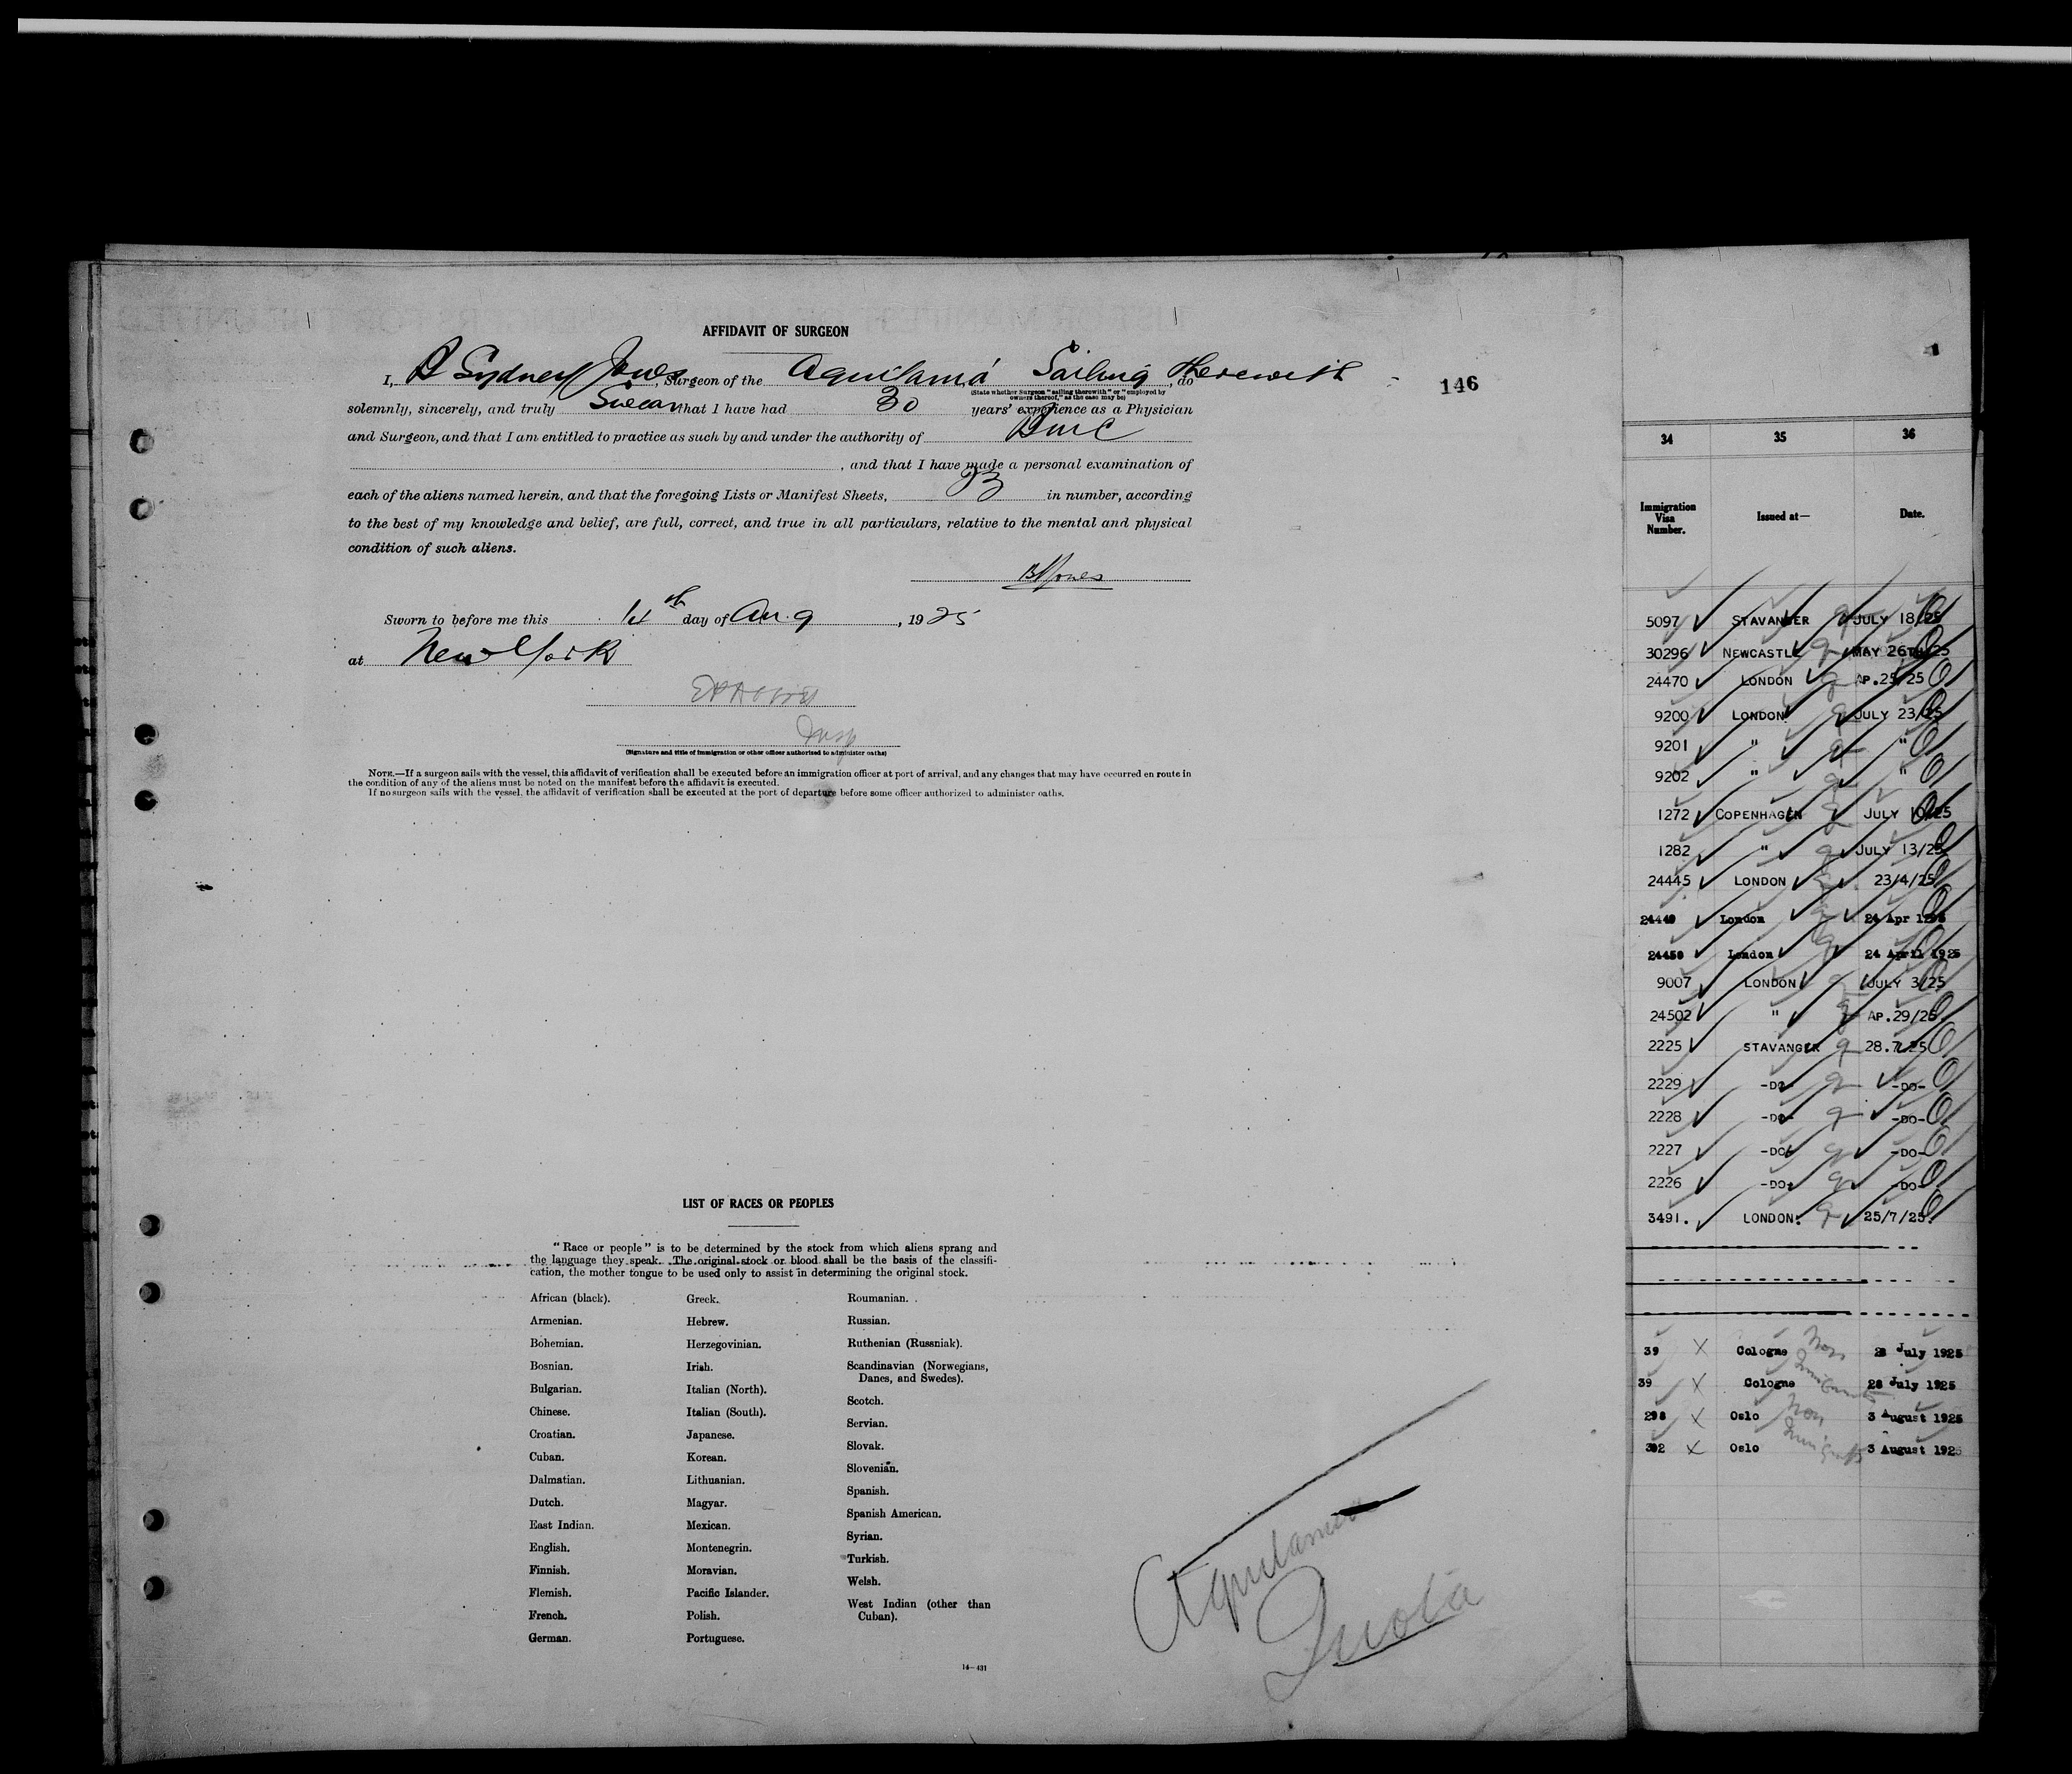 AFFIDAVIT OF SURGEON
I, B Sydney Jones, Surgeon of the Aquitania Sailing Therewith, do
(State whether Surgeon "sailing therewith" or "employed by
owners thereof," as the case may be)
146
solemnly, sincerely, and truly Swear that I have had 30 years' experience as a Physician
and Surgeon, and that I am entitled to practice as such by and under the authority of
, and that I have made a personal examination of
each of the aliens named herein, and that the foregoing Lists or Manifest Sheets, in number, according
to the best of my knowledge and belief, are full, correct, and true in all particulars, relative to the mental and physical
condition of such aliens.
BSJones
Sworn to before me this 14th day of Aug, 1925
at New York
Insp
(Signature and title of immigration or other officer authorized to administer oaths)
NOTE.—If a surgeon sails with the vessel, this affidavit of verification shall be executed before an immigration officer at port of arrival, and any changes that may have occurred en route in
the condition of any of the aliens must be noted on the manifest before the affidavit is executed.
If no surgeon sails with the vessel, the affidavit of verification shall be executed at the port of departure before some officer authorized to administer oaths.
LIST OF RACES OR PEOPLES
"Race or people" is to be determined by the stock from which aliens sprang and
the language they speak. The original stock or blood shall be the basis of the classifi-
cation, the mother tongue to be used only to assist in determining the original stock.
African (black).
Armenian.
Bohemian.
Bosnian.
Bulgarian.
Chinese.
Croatian.
Cuban.
Dalmatian.
Dutch.
East Indian.
English.
Finnish.
Flemish.
French.
German.
Greek.
Hebrew.
Herzegovinian.
Irish.
Italian (North).
Italian (South).
Japanese.
Korean.
Lithuanian.
Magyar.
Mexican.
Montenegrin.
Moravian.
Pacific Islander.
Polish.
Portuguese.
Roumanian.
Russian.
Ruthenian (Russniak).
Scandinavian (Norwegians,
Danes, and Swedes).
Scotch.
Servian.
Slovak.
Slovenian.
Spanish.
Spanish American.
Syrian.
Turkish.
Welsh.
West Indian (other than
Cuban).
14—431
Aquitania
Quota
1
34 35 36
Immigration
Visa
Number.
Issued at—
Date.
5097 STAVANGER JULY 18/25
30296 NEWCASTLE MAY 26TH/25
24470 LONDON AP.25/25
9200 LONDON JULY 23/25
9201 " "
9202 " "
1272 COPENHAGEN JULY 10/25
1282 " JULY 13/25
24445 LONDON 23/4/25
24449 London 24 Apr 1925
24450 London 24 April 1925
9007 LONDON JULY 3/25
24502 " AP.29/25
2225 STAVANGER 28.7.25
2229 -DO- -DO-
2228 -DO- -DO-
2227 -DO- -DO-
2226 -DO- -DO-
3491. LONDON. 25/7/25.
39 Cologne Non 28 July 1925
39 Cologne Immigrants 28 July 1925
298 Oslo Non 3 August 1925
302 Oslo Immigrants 3 August 1925